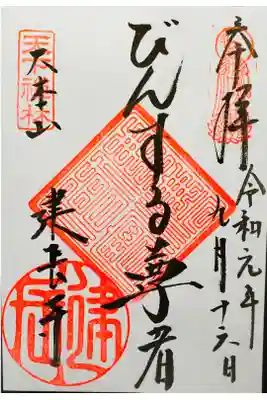 奉拝
令和元年
九月十六日
びんする尊者
大本山
建長寺